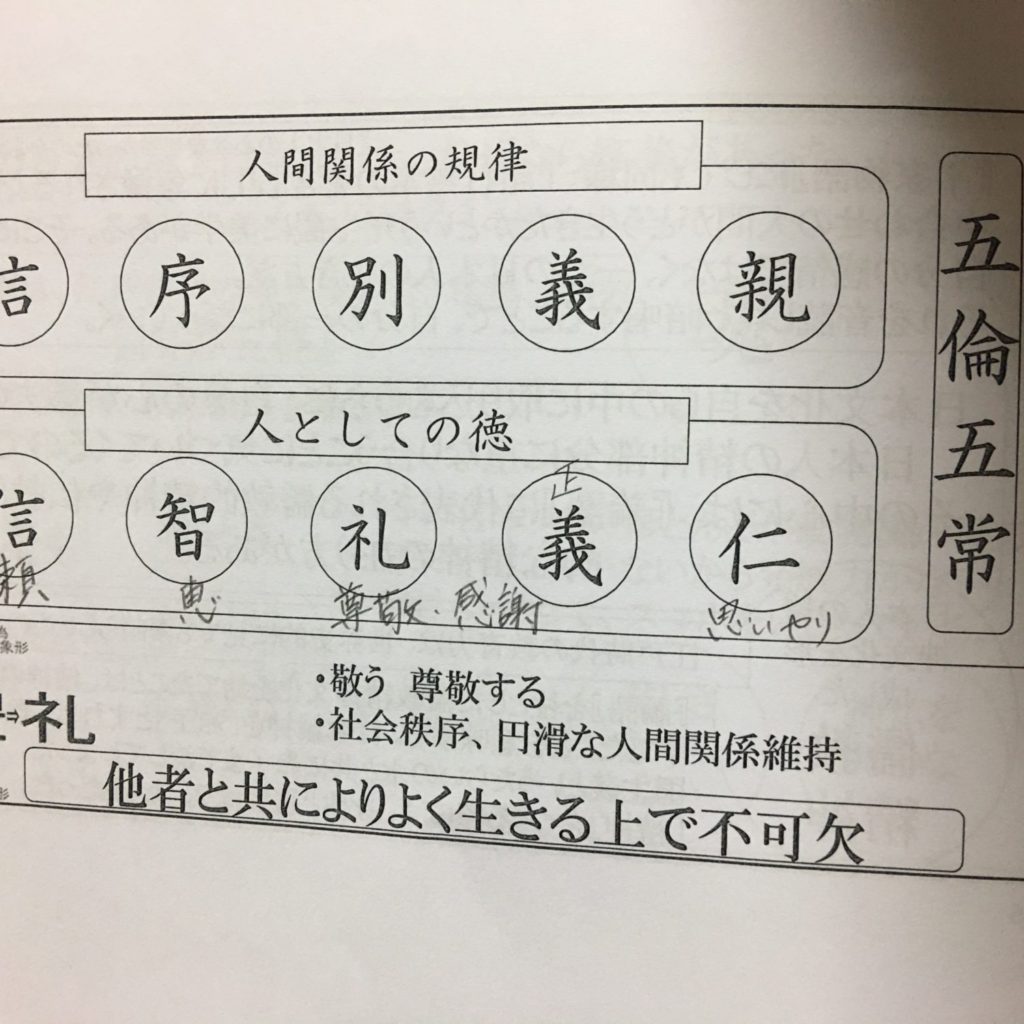 五倫五常
人間関係の規律
親 義 別 序 信
人としての徳
正
仁 義 礼 智 信
思いやり 尊敬・感謝 恵 頼
象形
⇒礼
・敬う 尊敬する
・社会秩序、円滑な人間関係維持
他者と共によりよく生きる上で不可欠